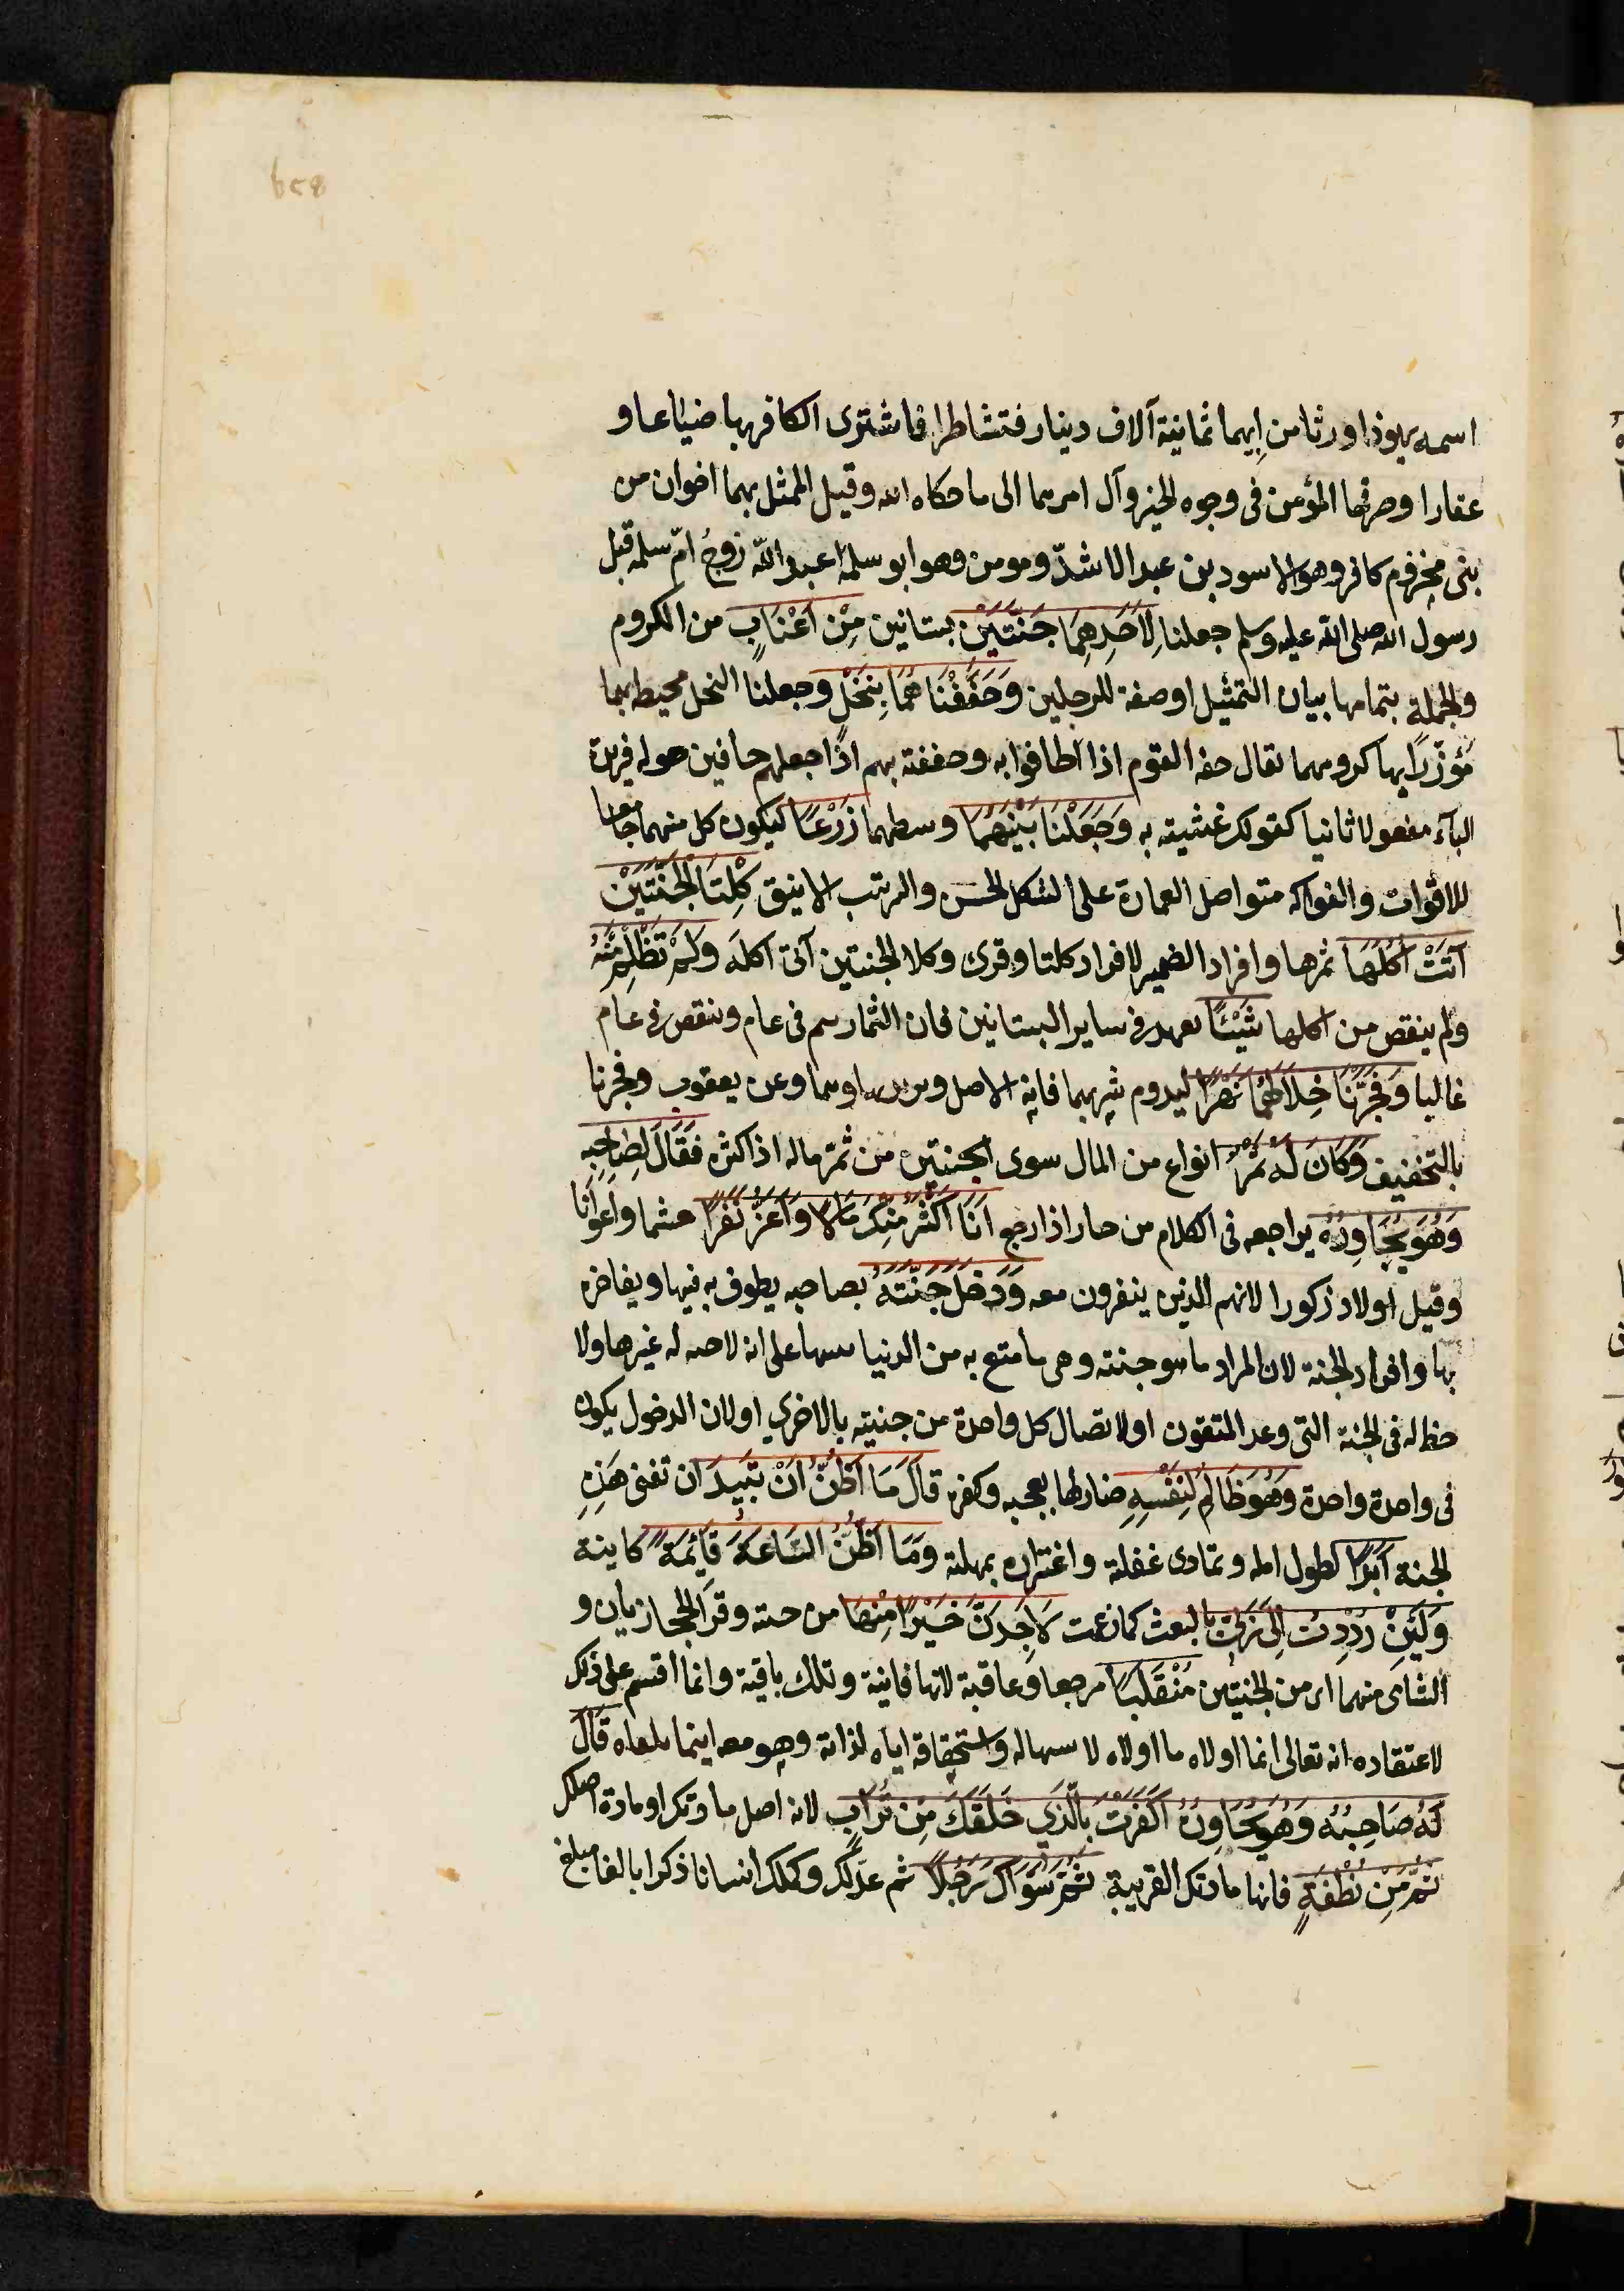 اسمه يهوذا ورثا من ابيهما ثمانية آلاف دينار فتشاطرا فاشترى الكافر بها ضياعا و
عقارا وصرفها المؤمن فى وجوه الخير وآل امرهما الى ما حكاه الله وقيل الممثل بهما اخوان من
بنى مخزوم كافر وهو الاسود بن عبد الاشدّ ومومن وهو ابو سلمة عبد الله زوج امّ سلمه قبل
رسول الله صلى الله عليه وسلم جعلنا لِاَحَدِهِمَا جَنَّتَيْنِ بستانين مِنْ اَعْنَابٍ من الكروم
والجملة بتمامها بيان التمثيل او صفة للرجلين وَحَفَفْنَا هُمَا بِنَخْلٍ وجعلنا النخل محيط بهما
مؤزّرا بها كرومهما يقال حفه القوم اذا اطافوا به وحففته بهم اذا جعلهم حافين حوله فيزيده
البآء مفعولا ثانيا كقولك غشيته به وَجَعَلْنَا بَيْنَهُمَا وسطهما زَرْعًا ليكون كل منهما جامعا
للاقوات والفواكه متواصل العمارة على الشكل الحسن والمرتب الانيق كِلْتَا الْجَنَّتَيْنِ
آتَتْ اُكُلَهَا ثمرها وافراد الضمير لافراد كلتا وقرئ وكلا الجنتين آتى اكله وَلَمْ تَظْلِمْ مِنْهُ
ولم ينقص من اكلها شَيْئًا يعهد فى ساير البستانين فان الثمار يتم فى عام وينقص فى عام
غالبا وَفَجَّرْنَا خِلَالَهُمَا نَهَرًا ليدوم شربهما فانه الاصل ويزيد بهاوهما وعن يعقوب وفجرنا
بالتخفيف وَكَانَ لَهُ ثَمَرٌ انواع من المال سوى الجنتين من ثمّر ماله اذا كثره فَقَالَ لِصَاحِبِه
وَهُوَ يُحَاوِرُهُ يراجعه فى الكلام من حار اذا رجع اَنَا اَكْثَرُ مِنْكَ مَالًا وَاَعَزُّ نَفَرًا حشما واعوانا
وقيل اولاد ذكورا لانهم الذين ينفرون معه وَدَخَلَ جَنَّتَهُ بصاحبه يطوف به فيها ويفاخره
بها وافراد الجنة لان المراد ما هو جنته وهى ما متع به من الدنيا تنبيها على انه لا جنة له غيرها ولا
حظ له فى الجنة التى وعد المتقون او لاتصال كل واحدة من جنتيه بالاخرى او لان الدخول يكون
فى واحدة واحدة وَهُوَ ظَالِمٌ لِنَفْسِهِ ضار لها بعجبه وكفره قَالَ مَا اَظُنُّ اَنْ تَبِيدَ ان تفنى هَذِهِ
الجنة اَبَدًا لطول امله وتمادى غفلته واغتراره بمهلته وَمَا اَظُنُّ السَّاعَةَ قَائِمَةً كاينة
وَلَئِنْ رُدِدْتُ اِلَى رَبِّى بالبعث كما زعمت لَاَجِدَنَّ خَيْرًا مِنْهَا من جنته وقرا الحجازيان و
الشامى منهما اى من الجنتين مُنْقَلَبًا مرجعا وعاقبة لانها فانية وتلك باقية وانما اقسم على ذلك
لاعتقاده انه تعالى انما اولاه ما اولاه لاستيهاله واستحقاقه اياه لذاته وهو معه اينما يلقاه قَالَ
لَهُ صَاحِبُهُ وَهُوَ يُحَاوِرُهُ اَكَفَرْتَ بِالَّذِي خَلَقَكَ مِنْ تُرَابٍ لانه اصل مادتك او مادة اصلك
ثُمَّ مِنْ نُطْفَةٍ فانها مادتك القريبة ثُمَّ سَوَّاكَ رَجُلًا ثم عدّلك وكملك انسانا ذكرا بالغا مبلغ